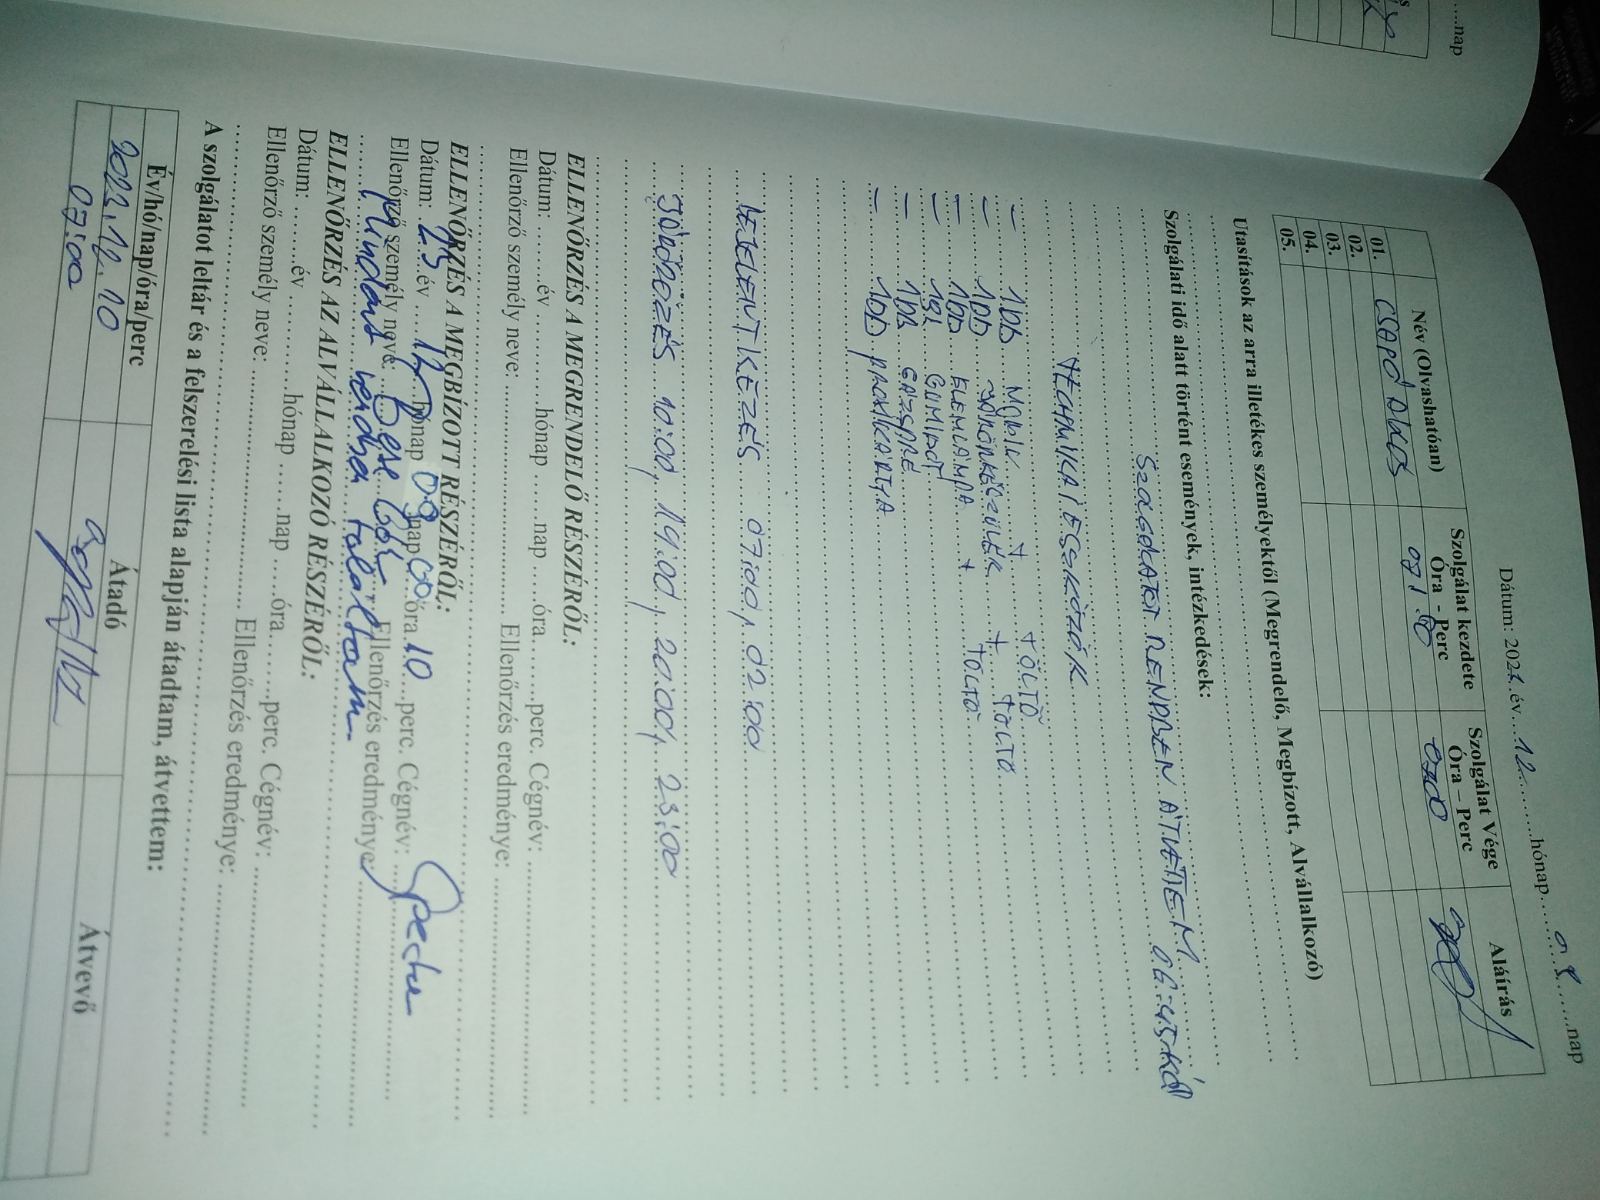 Dátum: 202 év 12 hónap 09 nap
Név (Olvashatóan)
Szolgálat kezdete Óra - Perc
Szolgálat Vége Óra – Perc
Aláírás
01. CSAPÓ 07:00
02.
03.
04.
05.
Utasítások az arra illetékes személyektől (Megrendelő, Megbízott, Alvállalkozó)
Szolgálati idő alatt történt események, intézkedések:
SZOLGÁLATOT RENDBEN ÁTVETTEM 06:45-KOR
TECHNIKAI ESZKÖZÖK
– 1DB MOBIL + TÖLTŐ
– 1DB + TÖLTŐ
– 1DB ELEMLÁMPA + TÖLTŐ
– 1DB GUMIBOT
– 1DB GÁZSPRÉ
– 1DB KÁRTYA
BEJELENTKEZÉS 07:00, 02:00
JÁRŐRÖZÉS 10:00, 19:00, 20:00, 23:00
ELLENŐRZÉS A MEGRENDELŐ RÉSZÉRŐL:
Dátum: év hónap nap óra perc. Cégnév:
Ellenőrző személy neve: Ellenőrzés eredménye:
ELLENŐRZÉS A MEGBÍZOTT RÉSZÉRŐL:
Dátum: 23 év 12 hónap 09 nap 00 óra 10 perc. Cégnév:
Ellenőrző személy neve: Ellenőrzés eredménye:
Mindent rendben találtam.
ELLENŐRZÉS AZ ALVÁLLALKOZÓ RÉSZÉRŐL:
Dátum: év hónap nap óra perc. Cégnév:
Ellenőrző személy neve: Ellenőrzés eredménye:
A szolgálatot leltár és a felszerelési lista alapján átadtam, átvettem:
Év/hó/nap/óra/perc Átadó Átvevő
2023.12.10
07:00